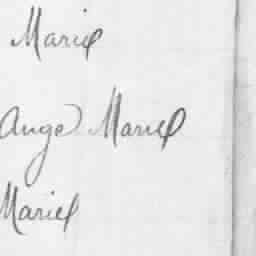 Marie
Ange Marie
Marie